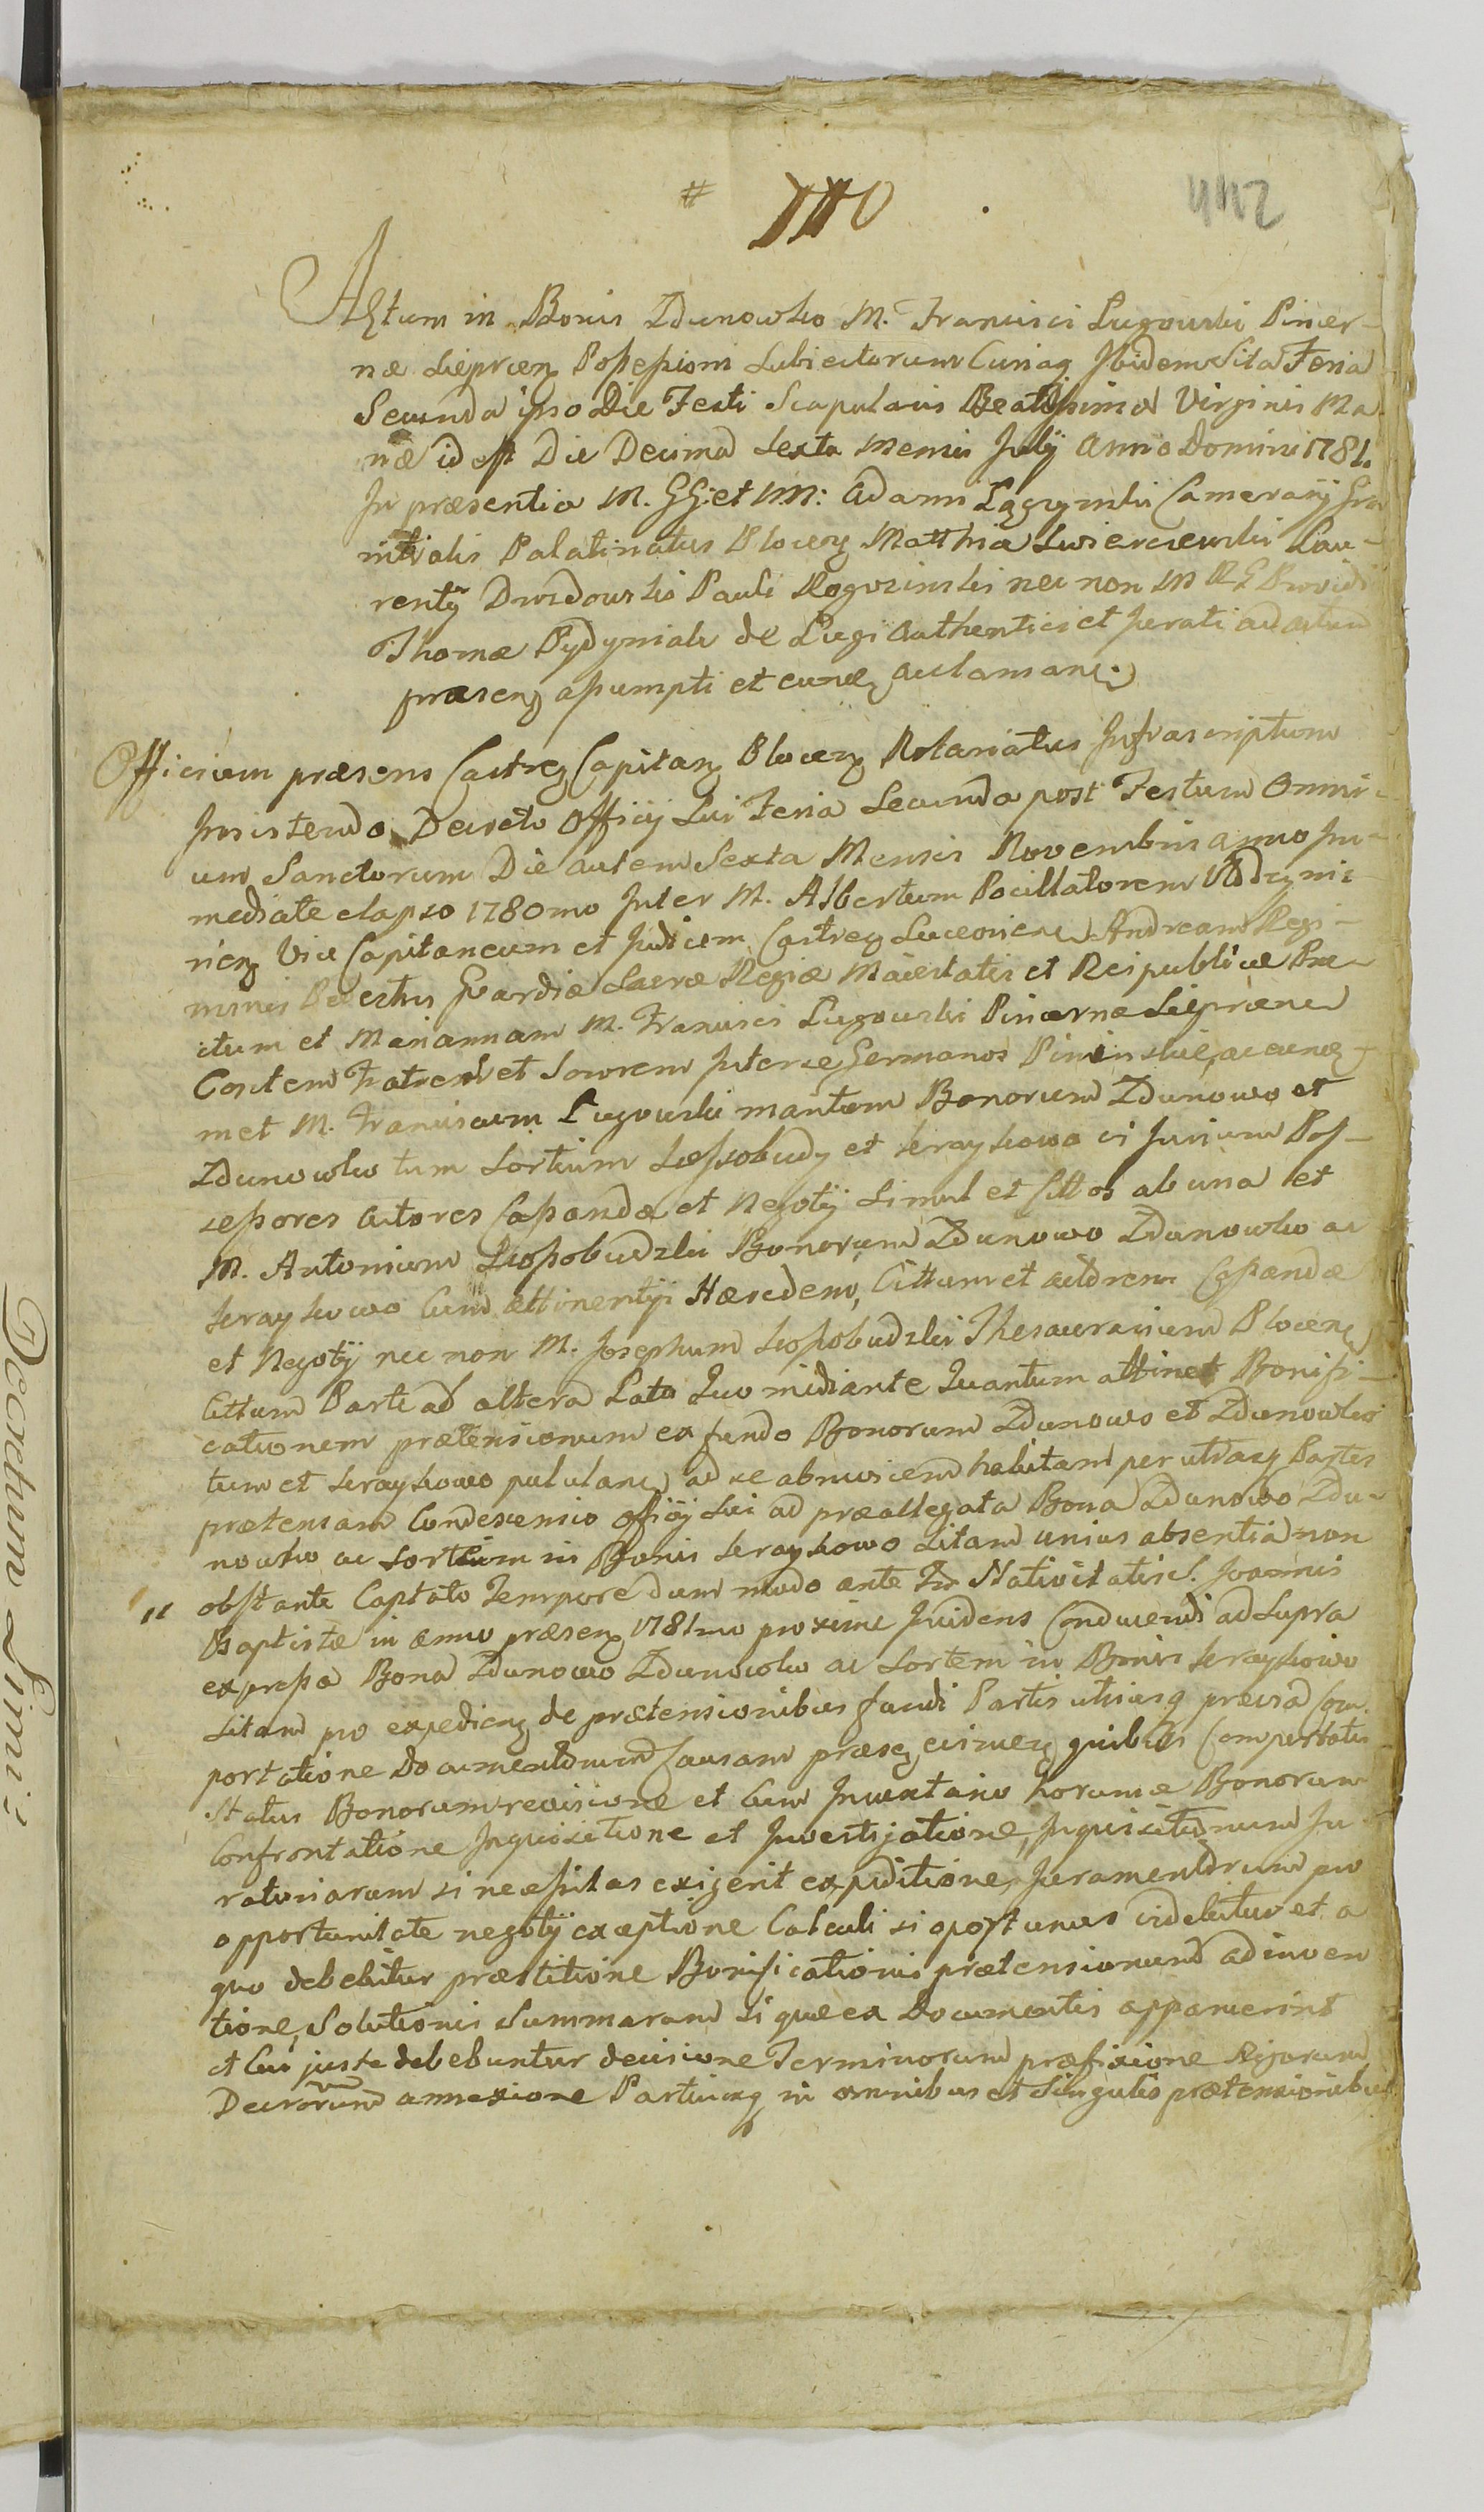 # 110 442
Actum in Bonis Zdunowko M. Francisci Ługowski Pincer-
næ Sieprcen Possessioni Subiectorum Curiaq Ibidem Sita Feria
Secunda ipso Die Festi Scapularis Beatissimæ Virginis Ma
riæ id est Die Decima Sexta Mensis Julij Anno Domini 1781.
In præsentia M. GG. et NN: Adami Camerarij Gra
nitialis Palatinatus Plocen Matthia Swierczewski Lau-
rentij Drozdowski Pauli Rogozinski nec non Providi
Thomæ de Authentici et Jurati ad actum
præsen assumpti et eund acclaman.
Officium præsens Castren Capitan Plocen Notariatus Infrascriptum
Insistendo Decreto Officij Sui Feria Secunda post Festum Omni-
um Sanctorum Die autem Sexta Mensis Novembris anno Im-
mediate elapso 1780mo Inter M. Albertum Pocillatorem
Vice Capitaneum et Judicem Castren Andream Regi-
minis Pedestris Gvardiæ Sacræ Regiæ Maiestatis et Reipublicæ
ctum et Mariannam M. Francisci Ługowski Pincernæ Sieprcen
Consortem Fratres et Sororem Inter se Germanos ac eund
met M. Franciscum Ługowski maritum Bonorum Zdunowo et
Zdunowko tum Sortium et Seraykowo ci Jurium Pos-
sessores Actores Cassandæ et Negotij Simul et Cittos ab una et
M. Antonium Bonorum Zdunowo Zdunowko ac
Seraykowo Cum attinentijs Hæredem, Cittum et actorem Cassandæ
et Negotij nec non M. Josephum Thesaurarium Plocen
Cittum Parte ab altera Lato Quo mediante Quantum attinet Bonifi-
cationem prætensionum ex fundo Bonorum Zdunowo et Zdunowko
tum et Seraykowo pululan ad se abinvicem habitam per utrasq Partes
prætensam Condescensio officij Sui ad præallegata Bona Zdunowo Zdu-
nowko ac Sortium in Bonis Seraykowo Sitam unius absentia non
" obstante Captato Tempore dum modo ante Nativitatis S. Joannis
Baptistæ in anno præsen 1781mo proxime Incidens Conducendi ad Supra
expressa Bona Zdunowo Zdunowko ac Sortem in Bonis Seraykowo
Sitam pro expedien de prætensionibus fundi Partis utriusq prævia Com-
portatione Documentorum Causam præsen quibus Comportatis
Status Bonorum revisione et Cum Inventario horumce Bonorum
Confrontatione Inquisitione et Investigatione, Inquisitionum Ju
ratoriarum si necessitas exigerit expeditione, Juramentorum pro
opportunitate negotij exceptione Calculi si oportunus videbitur et a
quo debebitur præstitione Bonificationis prætensionum adinven
tione, Solutionis Summarum si quæ ex Documentis apparuerint
et Cui juste debebuntur decisione Terminorum præfixione Rigorum
Decretorum annexione Partiumq in omnibus et Singulis prætensionibus
Decretum Simi